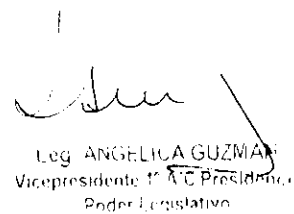 Leg. ANGELICA GUZMAN
Vicepresidente 1º A/C Presidencia
Poder Legislativo